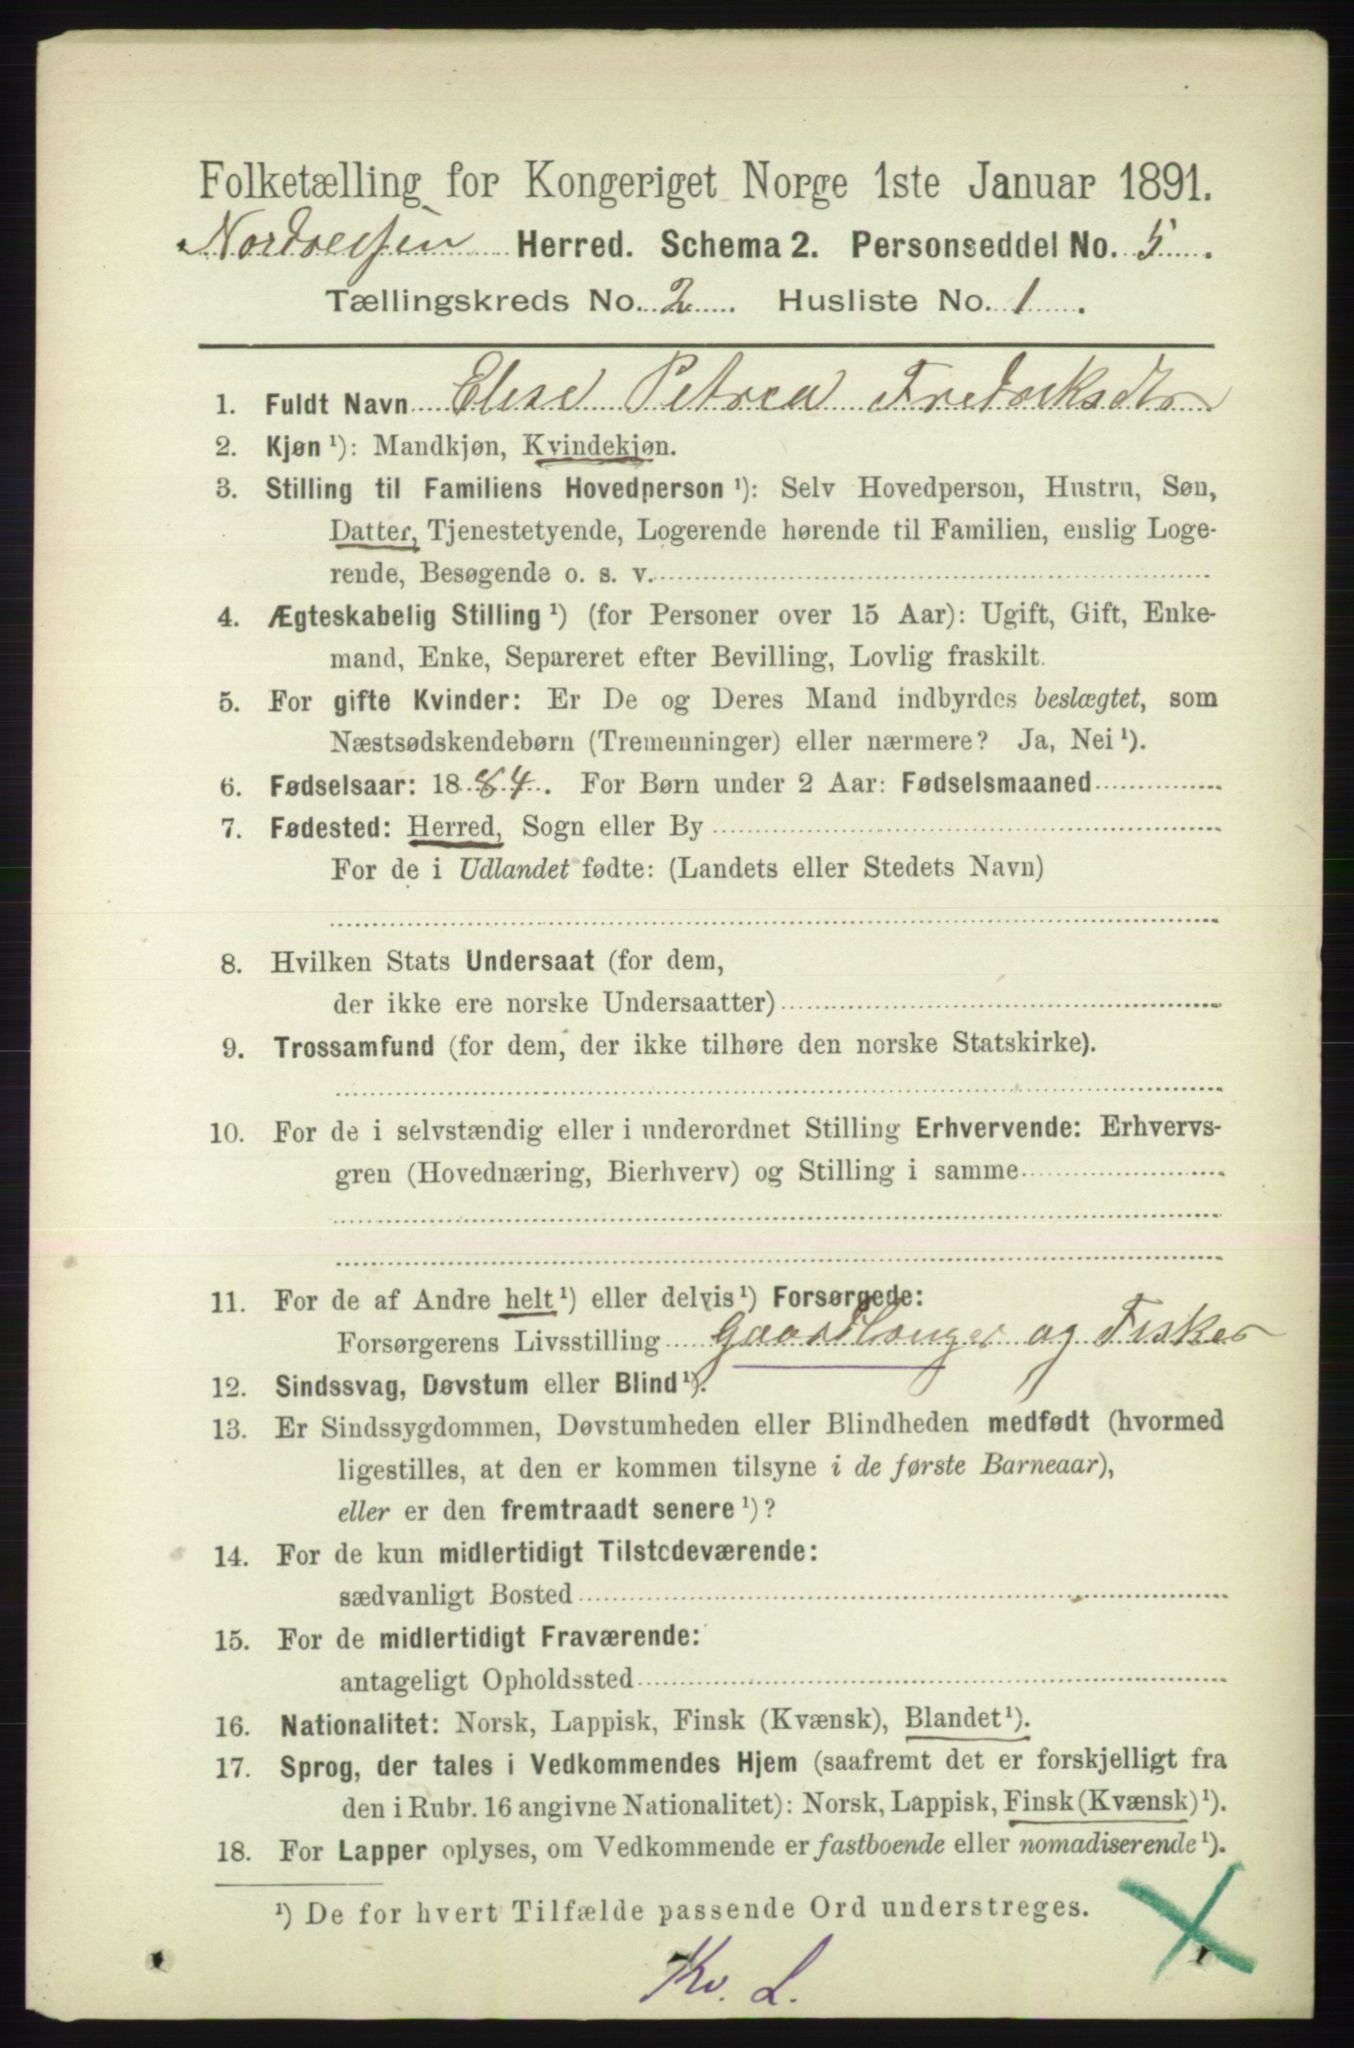 Folketælling for Kongeriget Norge 1ste Januar 1891.
Nordreisen Herred. Schema 2. Personseddel No. 5.
Tællingskreds No. 2. Husliste No. 1.
1. Fuldt Navn Elise Petrea Fredriksdtr
2. Kjøn ¹): Mandkjøn, Kvindekjøn.
3. Stilling til Familiens Hovedperson ¹): Selv Hovedperson, Hustru, Søn,
Datter, Tjenestetyende, Logerende hørende til Familien, enslig Loge-
rende, Besøgende o. s. v.
4. Ægteskabelig Stilling ¹) (for Personer over 15 Aar): Ugift, Gift, Enke-
mand, Enke, Separeret efter Bevilling, Lovlig fraskilt.
5. For gifte Kvinder: Er De og Deres Mand indbyrdes beslægtet, som
Næstsødskendebørn (Tremenninger) eller nærmere? Ja, Nei ¹).
6. Fødselsaar: 1884. For Børn under 2 Aar: Fødselsmaaned
7. Fødested: Herred, Sogn eller By
For de i Udlandet fødte: (Landets eller Stedets Navn)
8. Hvilken Stats Undersaat (for dem,
der ikke ere norske Undersaatter)
9. Trossamfund (for dem, der ikke tilhøre den norske Statskirke).
10. For de i selvstændig eller i underordnet Stilling Erhvervende: Erhvervs-
gren (Hovednæring, Bierhverv) og Stilling i samme
11. For de af Andre helt ¹) eller delvis ¹) Forsørgede:
Forsørgerens Livsstilling Gaardbruger og Fisker
12. Sindssvag, Døvstum eller Blind ¹).
13. Er Sindssygdommen, Døvstumheden eller Blindheden medfødt (hvormed
ligestilles, at den er kommen tilsyne i de første Barneaar),
eller er den fremtraadt senere ¹)?
14. For de kun midlertidigt Tilstedeværende:
sædvanligt Bosted
15. For de midlertidigt Fraværende:
antageligt Opholdssted
16. Nationalitet: Norsk, Lappisk, Finsk (Kvænsk), Blandet ¹).
17. Sprog, der tales i Vedkommendes Hjem (saafremt det er forskjelligt fra
den i Rubr. 16 angivne Nationalitet): Norsk, Lappisk, Finsk (Kvænsk) ¹).
18. For Lapper oplyses, om Vedkommende er fastboende eller nomadiserende ¹).
¹) De for hvert Tilfælde passende Ord understreges.
Kv. L.